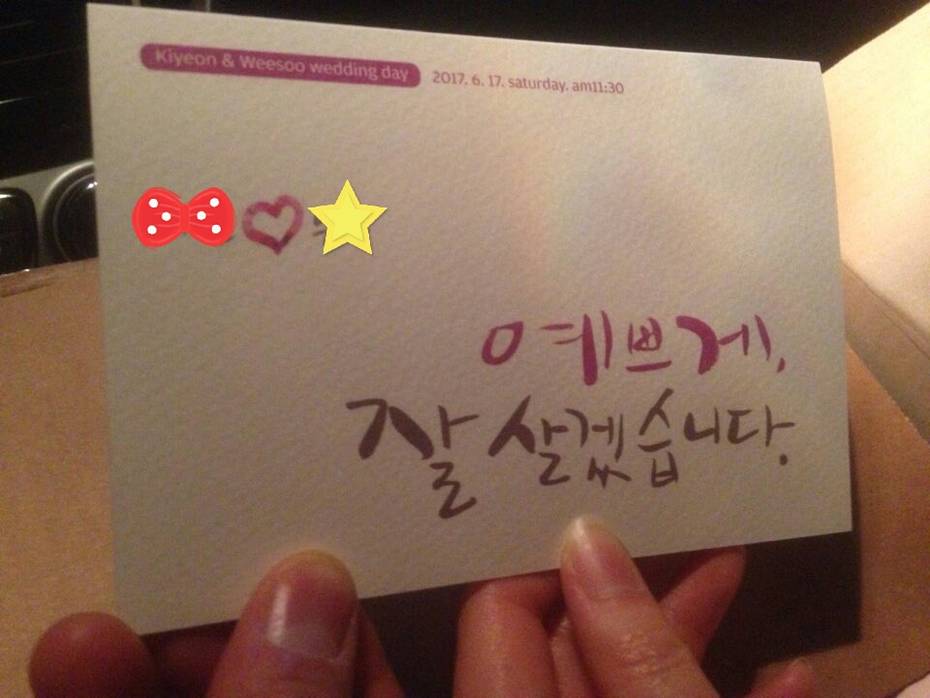 Kiyeon & Weesoo wedding day 2017. 6. 17. saturday. am11:30
예쁘게,
잘 살겠습니다.